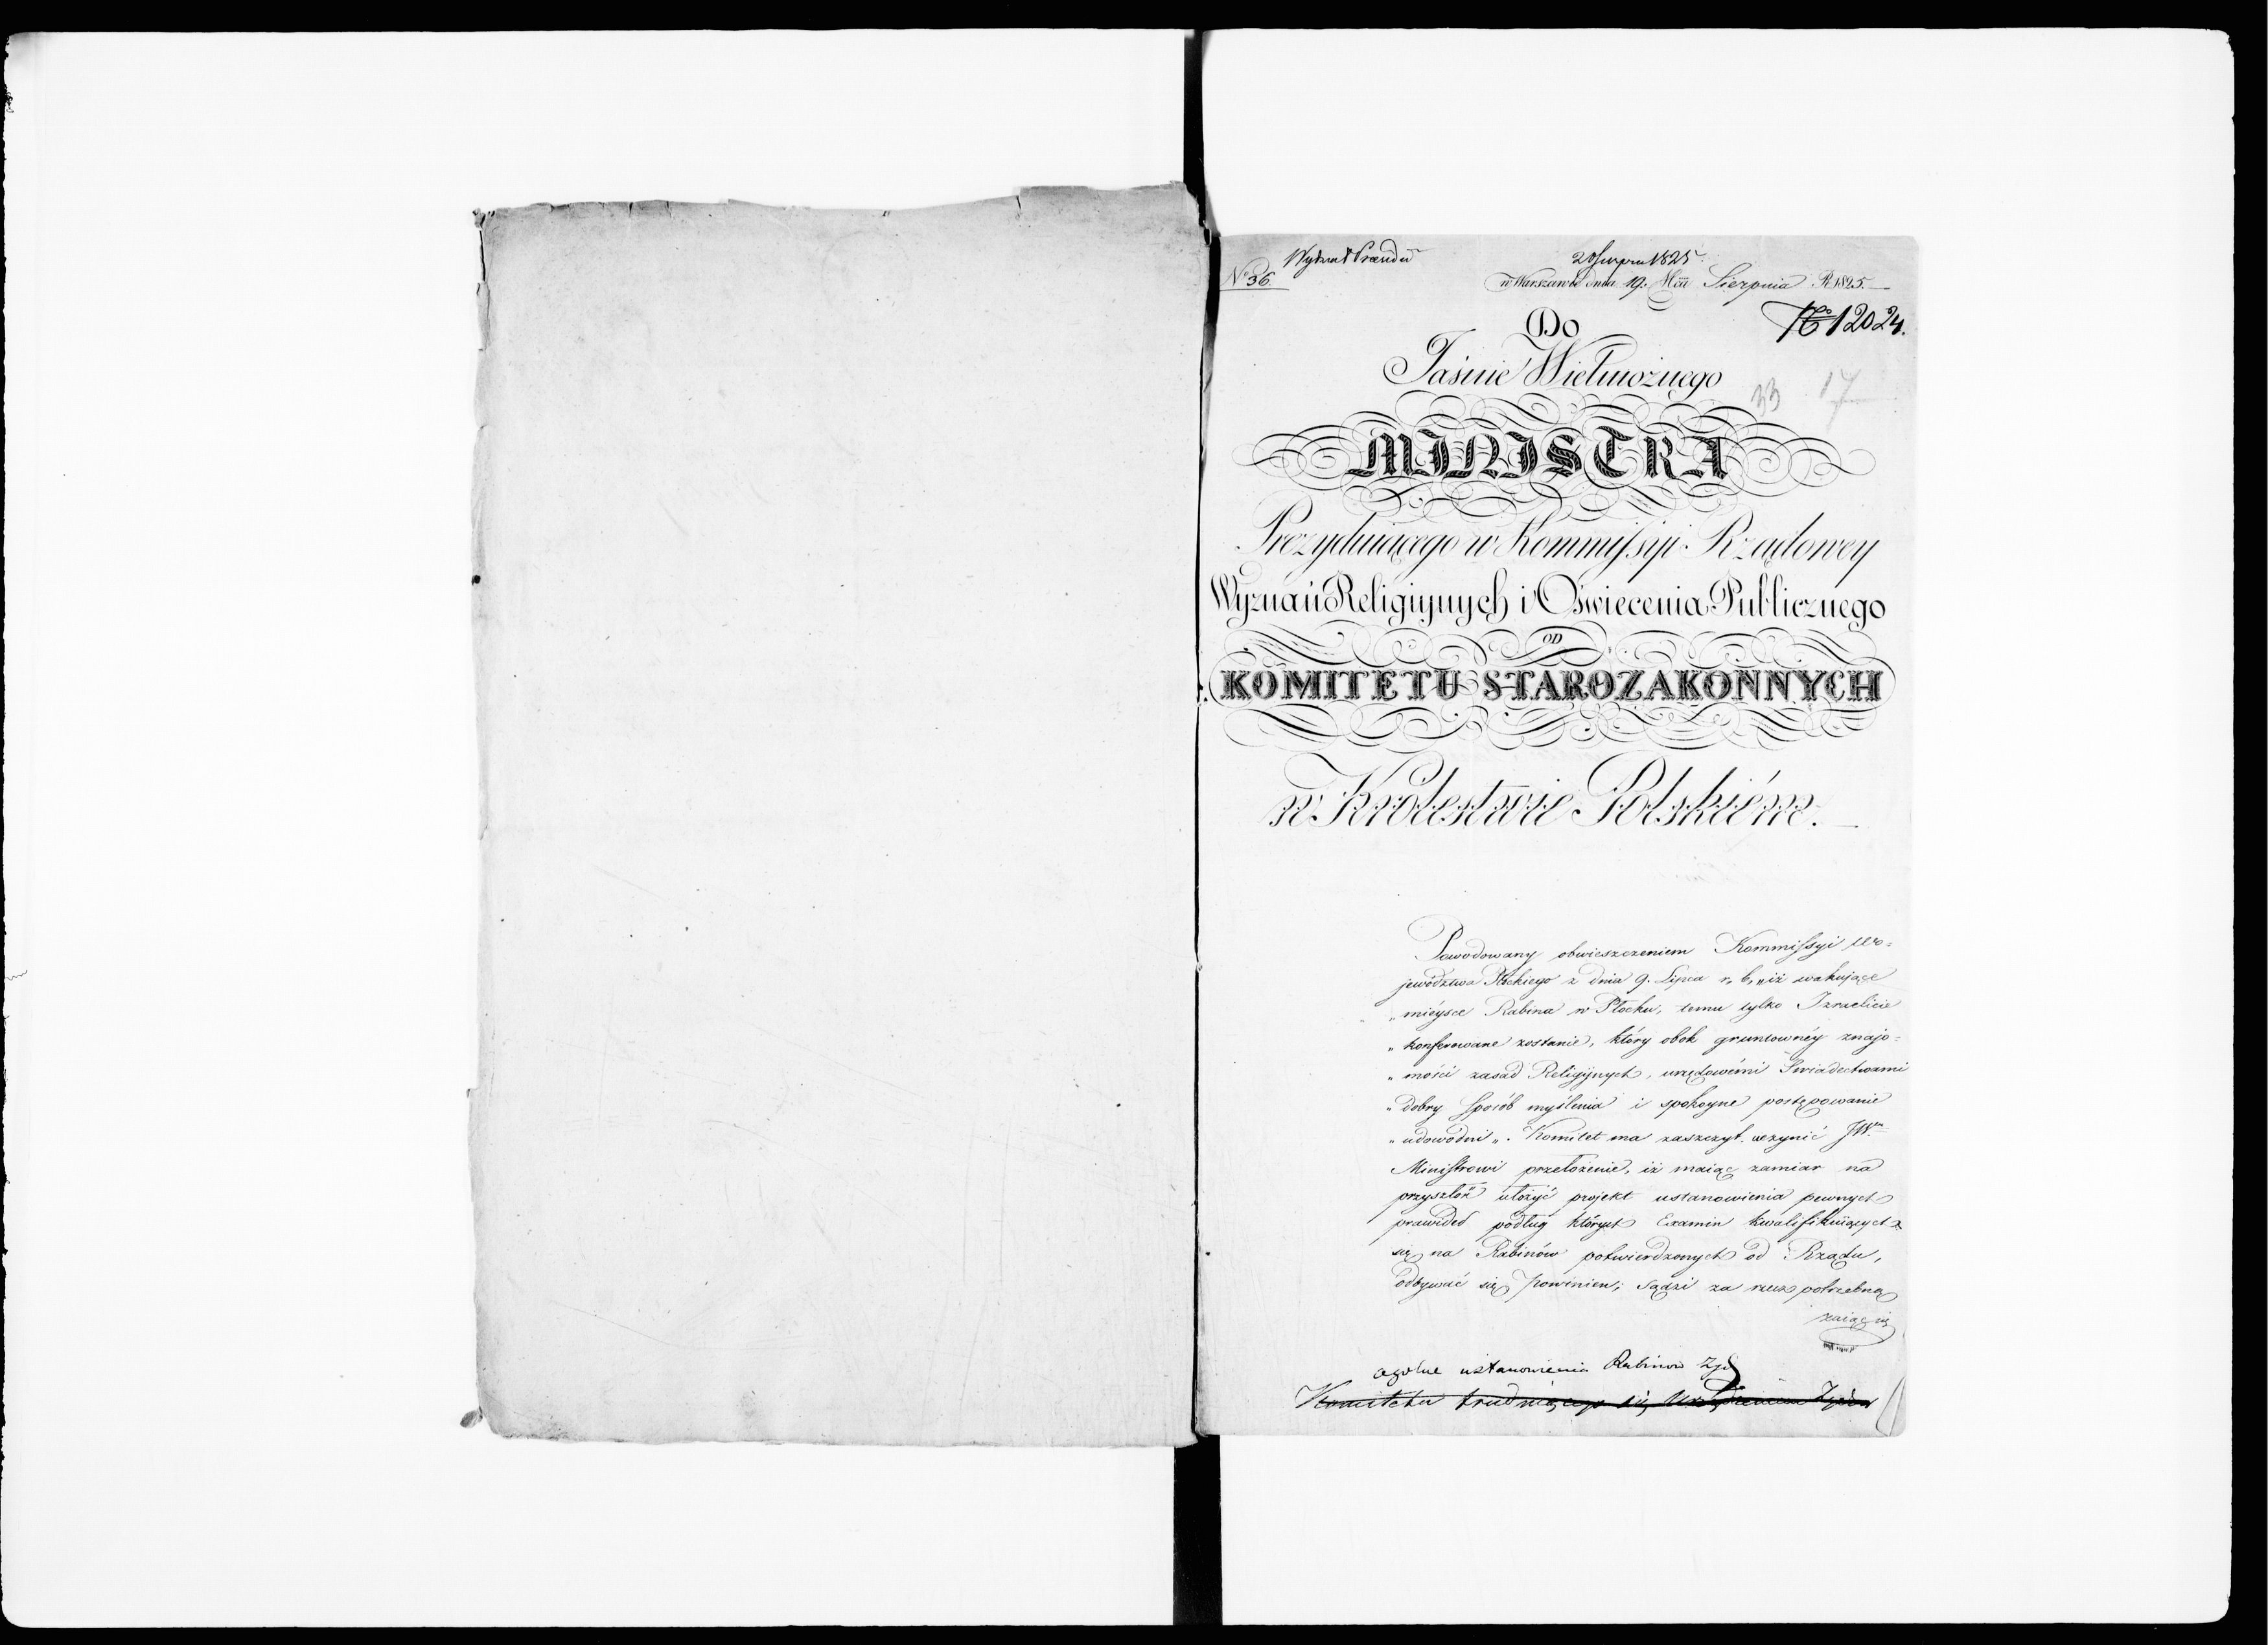 Wydział
20 Sierpnia 1825
No 36.
w Warszawie dnia 19. Mca Sierpnia R. 1825.
No 12024.
Do
Jaśnie Wielmożnego
33 17
MINISTRA
Prezyduiącego w Kommissyi Rządowey
Wyznań Religiynych i Oświecenia Publicznego
OD
KOMITETU STAROZAKONNYCH
w Królestwie Polskiém.
Powodowany obwieszczeniem Kommissyi Wo=
jewództwa Płockiego z dnia 9. Lipca r. b. „iż wakujące
„mieysce Rabina w Płocku, temu tylko Izraelicie
„konferowane zostanie, który obok gruntownéy znajo=
„mości zasad Religiynych, urzędowémi Świadectwami
„dobry sposób myślenia i spokoyne postępowanie
„udowodni„. Komitet ma zaszczyt uczynić JWu
Ministrowi przełożenie, iż maiąc zamiar na
przyszłość ułożyć projekt ustanowienia pewnych
prawideł podług których Examin kwalifikuiących
się na Rabinów potwierdzonych od Rządu,
odbywać się powinien; sądzi za rzecz potrzebną
zaiąć się
ogólne ustanowienia Rabinów Żyd
Komitetu trudniącego się Urządzeniem Żydów